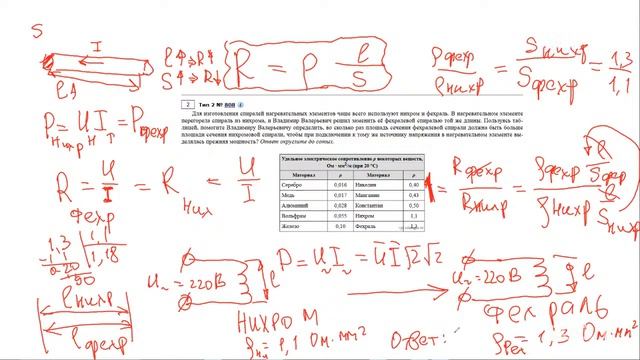 S
I
l↑
l↑ ⇒ R↑
S↑ ⇒ R↓
R = ρ l/S
ρфехр/ρнихр = Sнихр/Sфехр = 1,3/1,1
2 Тип 2 № 808
Для изготовления спиралей нагревательных элементов чаще всего используют нихром и фехраль. В нагревательном элементе
перегорела спираль из нихрома, и Владимир Валерьевич решил заменить её фехралевой спиралью той же длины. Пользуясь таб-
лицей, помогите Владимиру Валерьевичу определить, во сколько раз площадь сечения фехралевой спирали должна быть больше
площади сечения нихромовой спирали, чтобы при подключении к тому же источнику напряжения в нагревательном элементе вы-
делялась прежняя мощность? Ответ округлите до сотых.
P = UI = Pфехр
нихр
R = U/I = Rних = U/I
фехр
Удельное электрическое сопротивление ρ некоторых веществ,
Ом · мм²/м (при 20 °C)
Материал ρ Материал ρ
Серебро 0,016 Никелин 0,40
Медь 0,017 Манганин 0,43
Алюминий 0,028 Константан 0,50
Вольфрам 0,055 Нихром 1,1
Железо 0,10 Фехраль 1,3
1 = Rфехр/Rнихр
1,3 | 1,1
1,18
lнихр
lфехр
U~ = 220 В
l
P = UI = UI√2√2
U~ = 220 В
l
НИХРОМ
1,1 Ом·мм²
Ответ:
ФЕХРАЛЬ
= 1,3 Ом·мм²